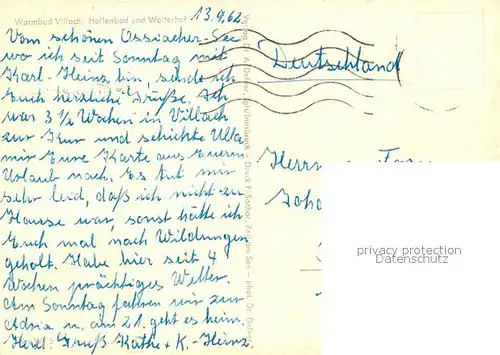 Warmbad Villach: Hallenbad und Walterhof
13.9.62
Vom schönen Ossiacher-See
wo ich seit Sonntag mit
Karl-Heinz bin, sende ich
Euch herzliche Grüße. Ich
war 3 1/2 Wochen in Villach
zur Kur und schickte Ulla
mir Eure Karte aus Eurem
Urlaub nach. Es tut mir
sehr leid, daß ich nicht zu
Hause war, sonst hätte ich
Euch mal nach Wildungen
geholt. Habe hier seit 4
Wochen prächtiges Wetter.
Am Sonntag fahren wir zur
Adria u. am 21. geht es heim.
Herzl. Gruß Käthe + K.-Heinz
Deutschland
Herrn
privacy protection
Datenschutz